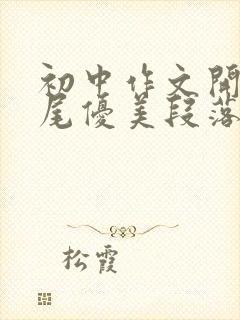 初中作文開
尾優美段落
松霞